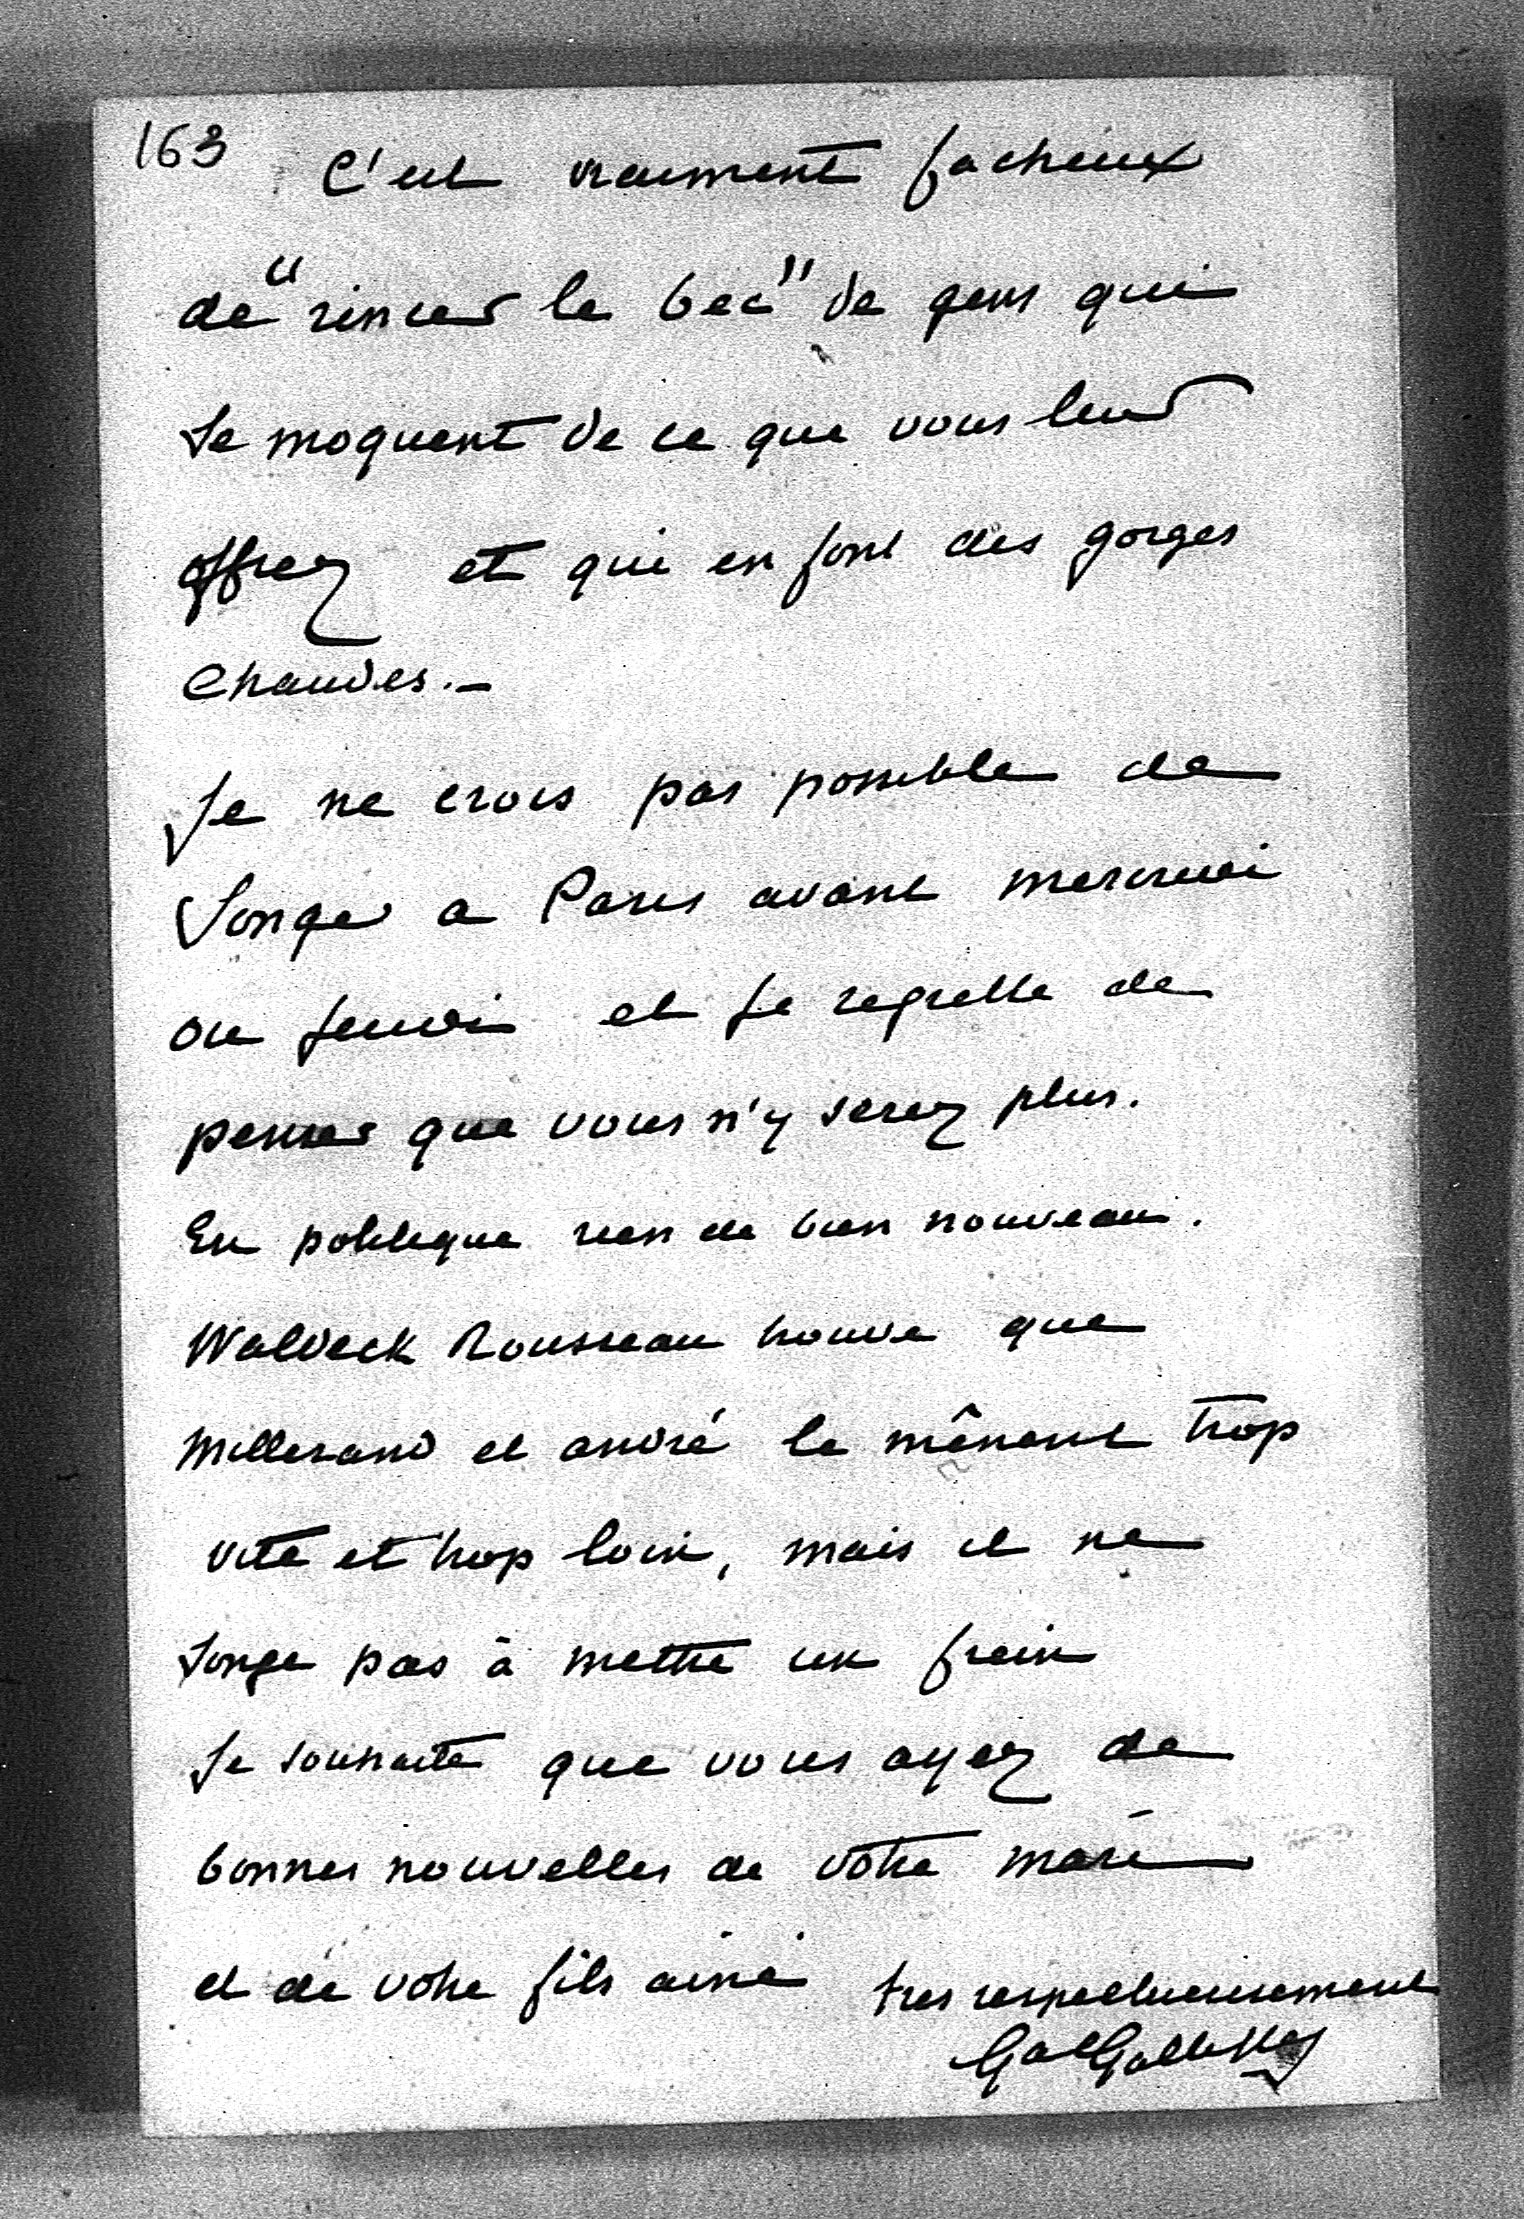 163
C'est vraiment facheux
de "rincer le bec" de gens qui
se moquent de ce que vous leur
offrez et qui en font des gorges
chaudes. —
Je ne crois pas possible de
songer a Paris avant mercredi
ou jeudi et je regrette de
penser que vous n'y serez plus.
En politique rien de bien nouveau.
Waldeck Rousseau trouve que
Millerand et andré le mênent trop
vite et trop loin, mais il ne
songe pas à mettre un frein
Je souhaite que vous ayez de
bonnes nouvelles de votre mari
et de votre fils ainé très respectueusement
Gal Galliffet